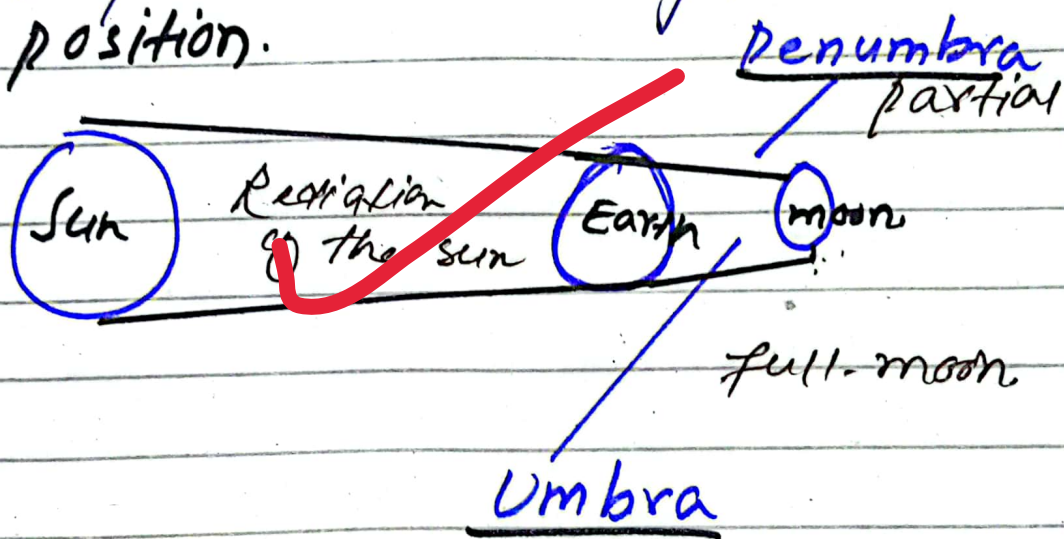 position.
Penumbra
partial
Sun
Rediation
of the sun
Earth
moon
full-moon
Umbra